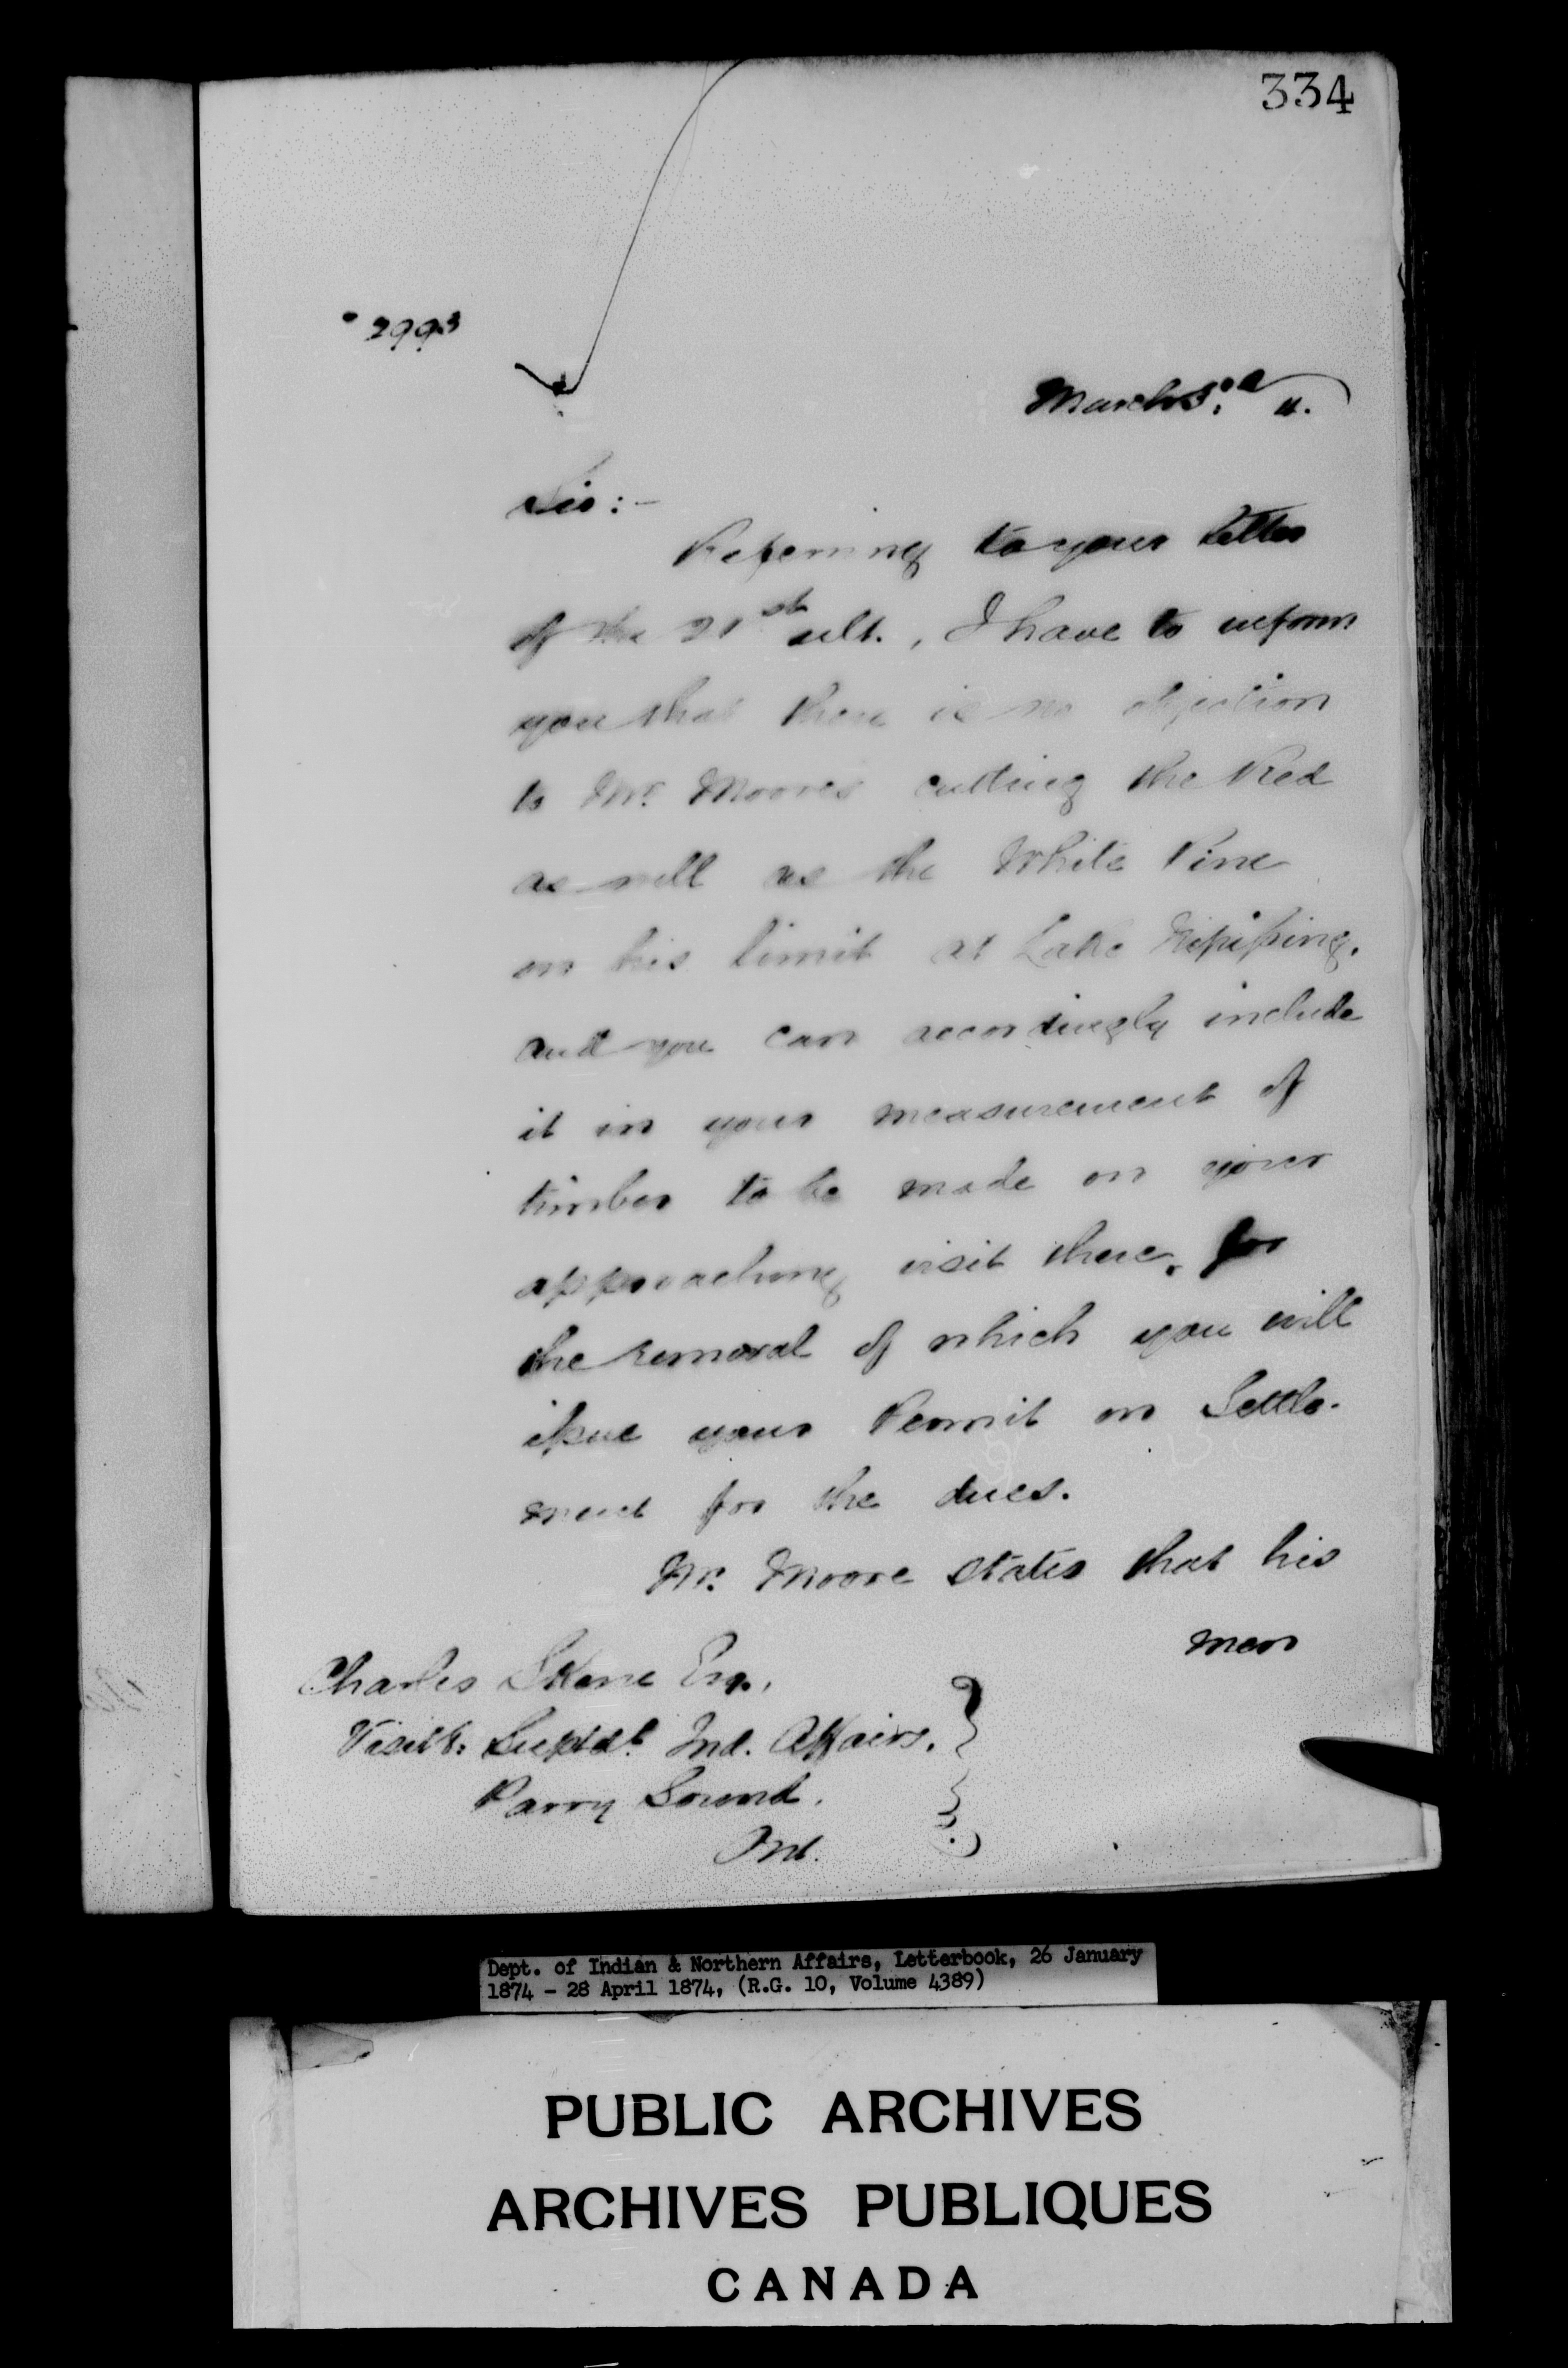 334
2993
March 3rd
Sir:-
Referring to your letter
of the 21st ult., I have to inform
you that there is no objection
to Mr. Moores cutting the Red
as well as the White Pine
on his limit at Lake Nipissing,
and you can accordingly include
it in your measurement of
timber to be made on your
approaching visit there, for
the removal of which you will
issue your Permit on Settle-
ment for the dues.
Mr. Moore states that his
men
Charles Skene Esq.,
Visitg. Suptdt. Ind. Affairs.
Parry Sound.
Ont.
Dept. of Indian & Northern Affairs, Letterbook, 26 January
1874 - 28 April 1874, (R.G. 10, Volume 4389)
PUBLIC ARCHIVES
ARCHIVES PUBLIQUES
CANADA